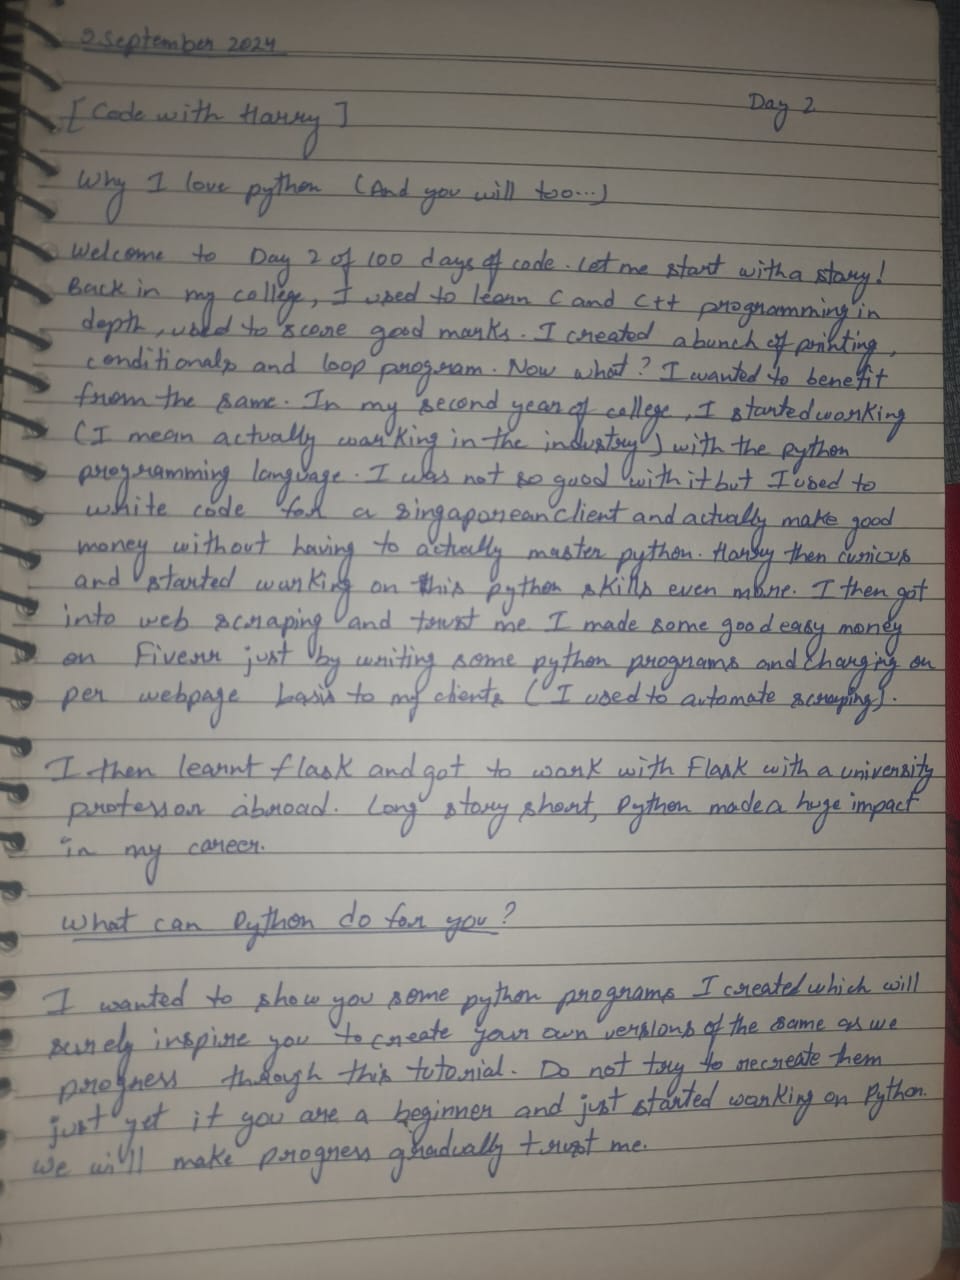 2 September 2024
Day 2
[Code with Harry]
Why I love python (And you will too...)
Welcome to Day 2 of 100 days of code. Let me start with a story!
Back in my college, I used to learn C and C++ programming in
depth, used to score good marks. I created a bunch of printing,
conditionals and loop program. Now what? I wanted to benefit
from the same. In my second year of college, I started working
(I mean actually working in the industry) with the python
programming language. I was not so good with it but I used to
write code for a singaporean client and actually make good
money without having to actually master python. Harry then curious
and started working on this python skills even more. I then got
into web scraping and trust me I made some good easy money
on Fiverr just by writing some python programs and charging on
per webpage basis to my clients (I used to automate scraping).
I then learnt flask and got to work with Flask with a university
professor abroad. Long story short, Python made a huge impact
in my career.
What can Python do for you?
I wanted to show you some python programs I created which will
surely inspire you to create your own versions of the same as we
progress through this tutorial. Do not try to recreate them
just yet if you are a beginner and just started working on Python.
We will make progress gradually trust me.